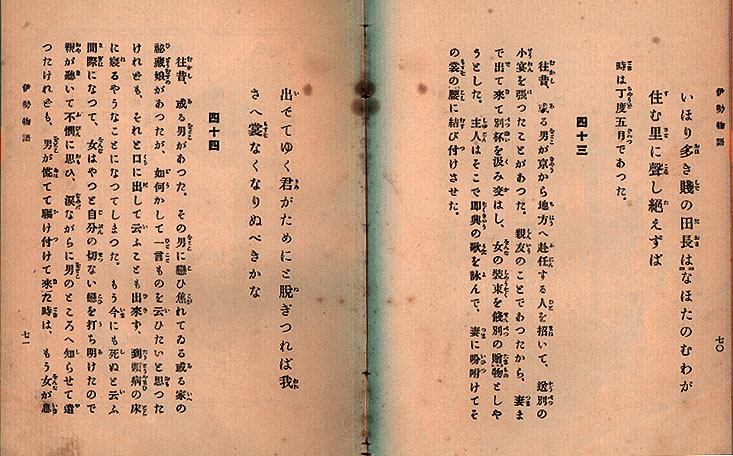 伊勢物語
七〇
いほり多き賤の田長はなほたのむわが
住む里に聲し絶えずば
時は丁度五月であつた。
四十三
往昔、或る男が京から地方へ赴任する人を招いて、送別の
小宴を張つたことがあつた。親友のことであつたから、妻ま
で出て來て別杯を汲み交はし、女の裝束を餞別の贈物としや
うとした。主人はそこで即興の歌を詠んで、妻に吩附けてそ
の裳の腰に結び付けさせた。
出でてゆく君がためにと脱ぎつれば我
さへ裳なくなりぬべきかな
四十四
往昔、或る男があつた。その男に戀ひ焦れてゐる或る家の
祕藏娘があつたが、如何かして一言ものを云ひたいと思つた
けれども、それと口に出して云ふことも出來ず、到頭病の床
に寢るやうなことになつてしまつた。もう今にも死ぬと云ふ
間際になつて、女はやつと自分の切ない戀を打ち明けたので
親が聽いて不憫に思ひ、涙ながらに男のところへ知らせて遣
つたけれども、男が慌てて驅け付けて來た時は、もう女が息
伊勢物語
七一